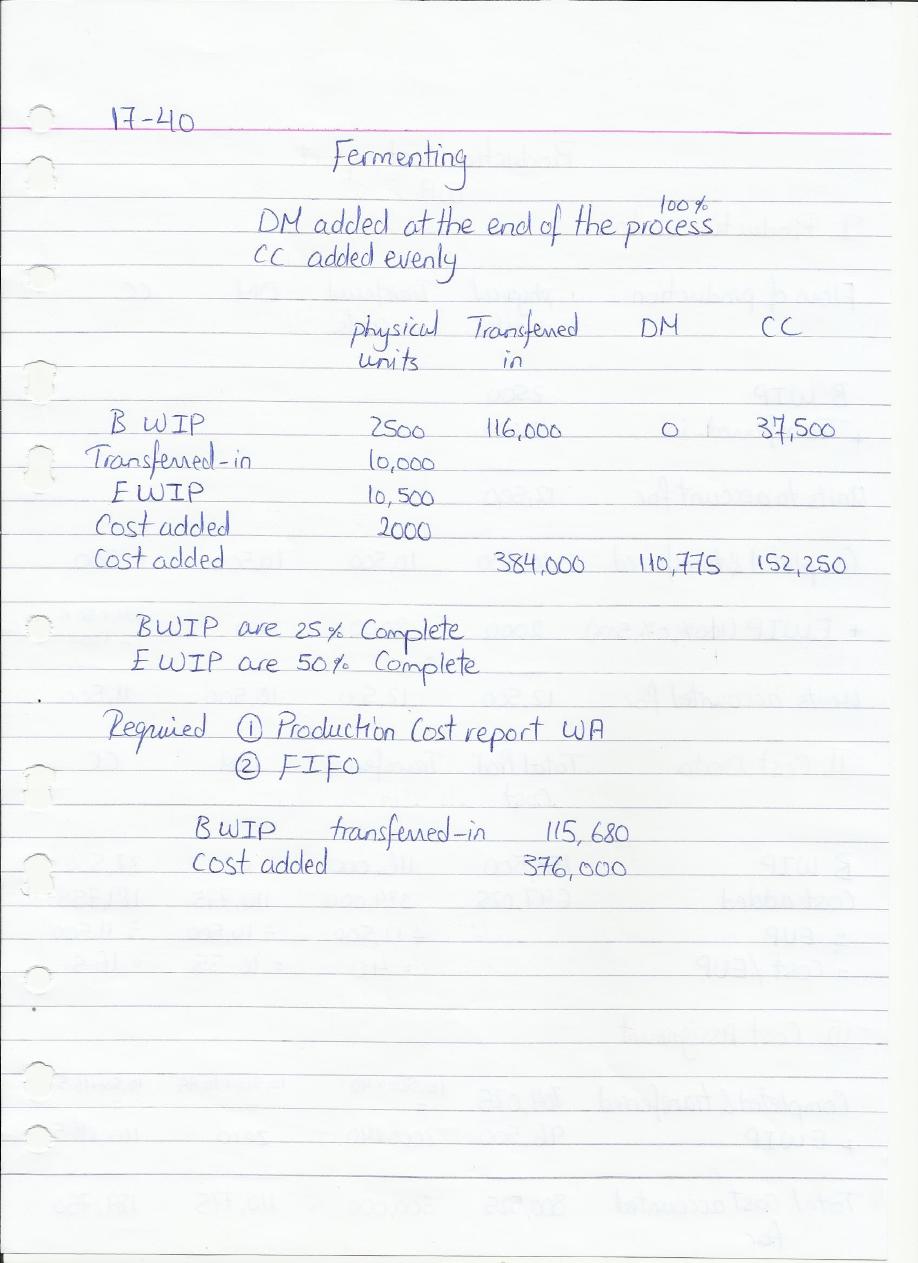 17-40
Fermenting
100%
DM added at the end of the process
CC added evenly
physical units Transferred in DM CC
B WIP 2500 116,000 0 37,500
Transferred-in 10,000
E WIP 10,500
Cost added 2000
Cost added 384,000 110,775 152,250
BWIP are 25% Complete
E WIP are 50% Complete
Required ① Production Cost report WA
② FIFO
B WIP transferred-in 115,680
Cost added 376,000